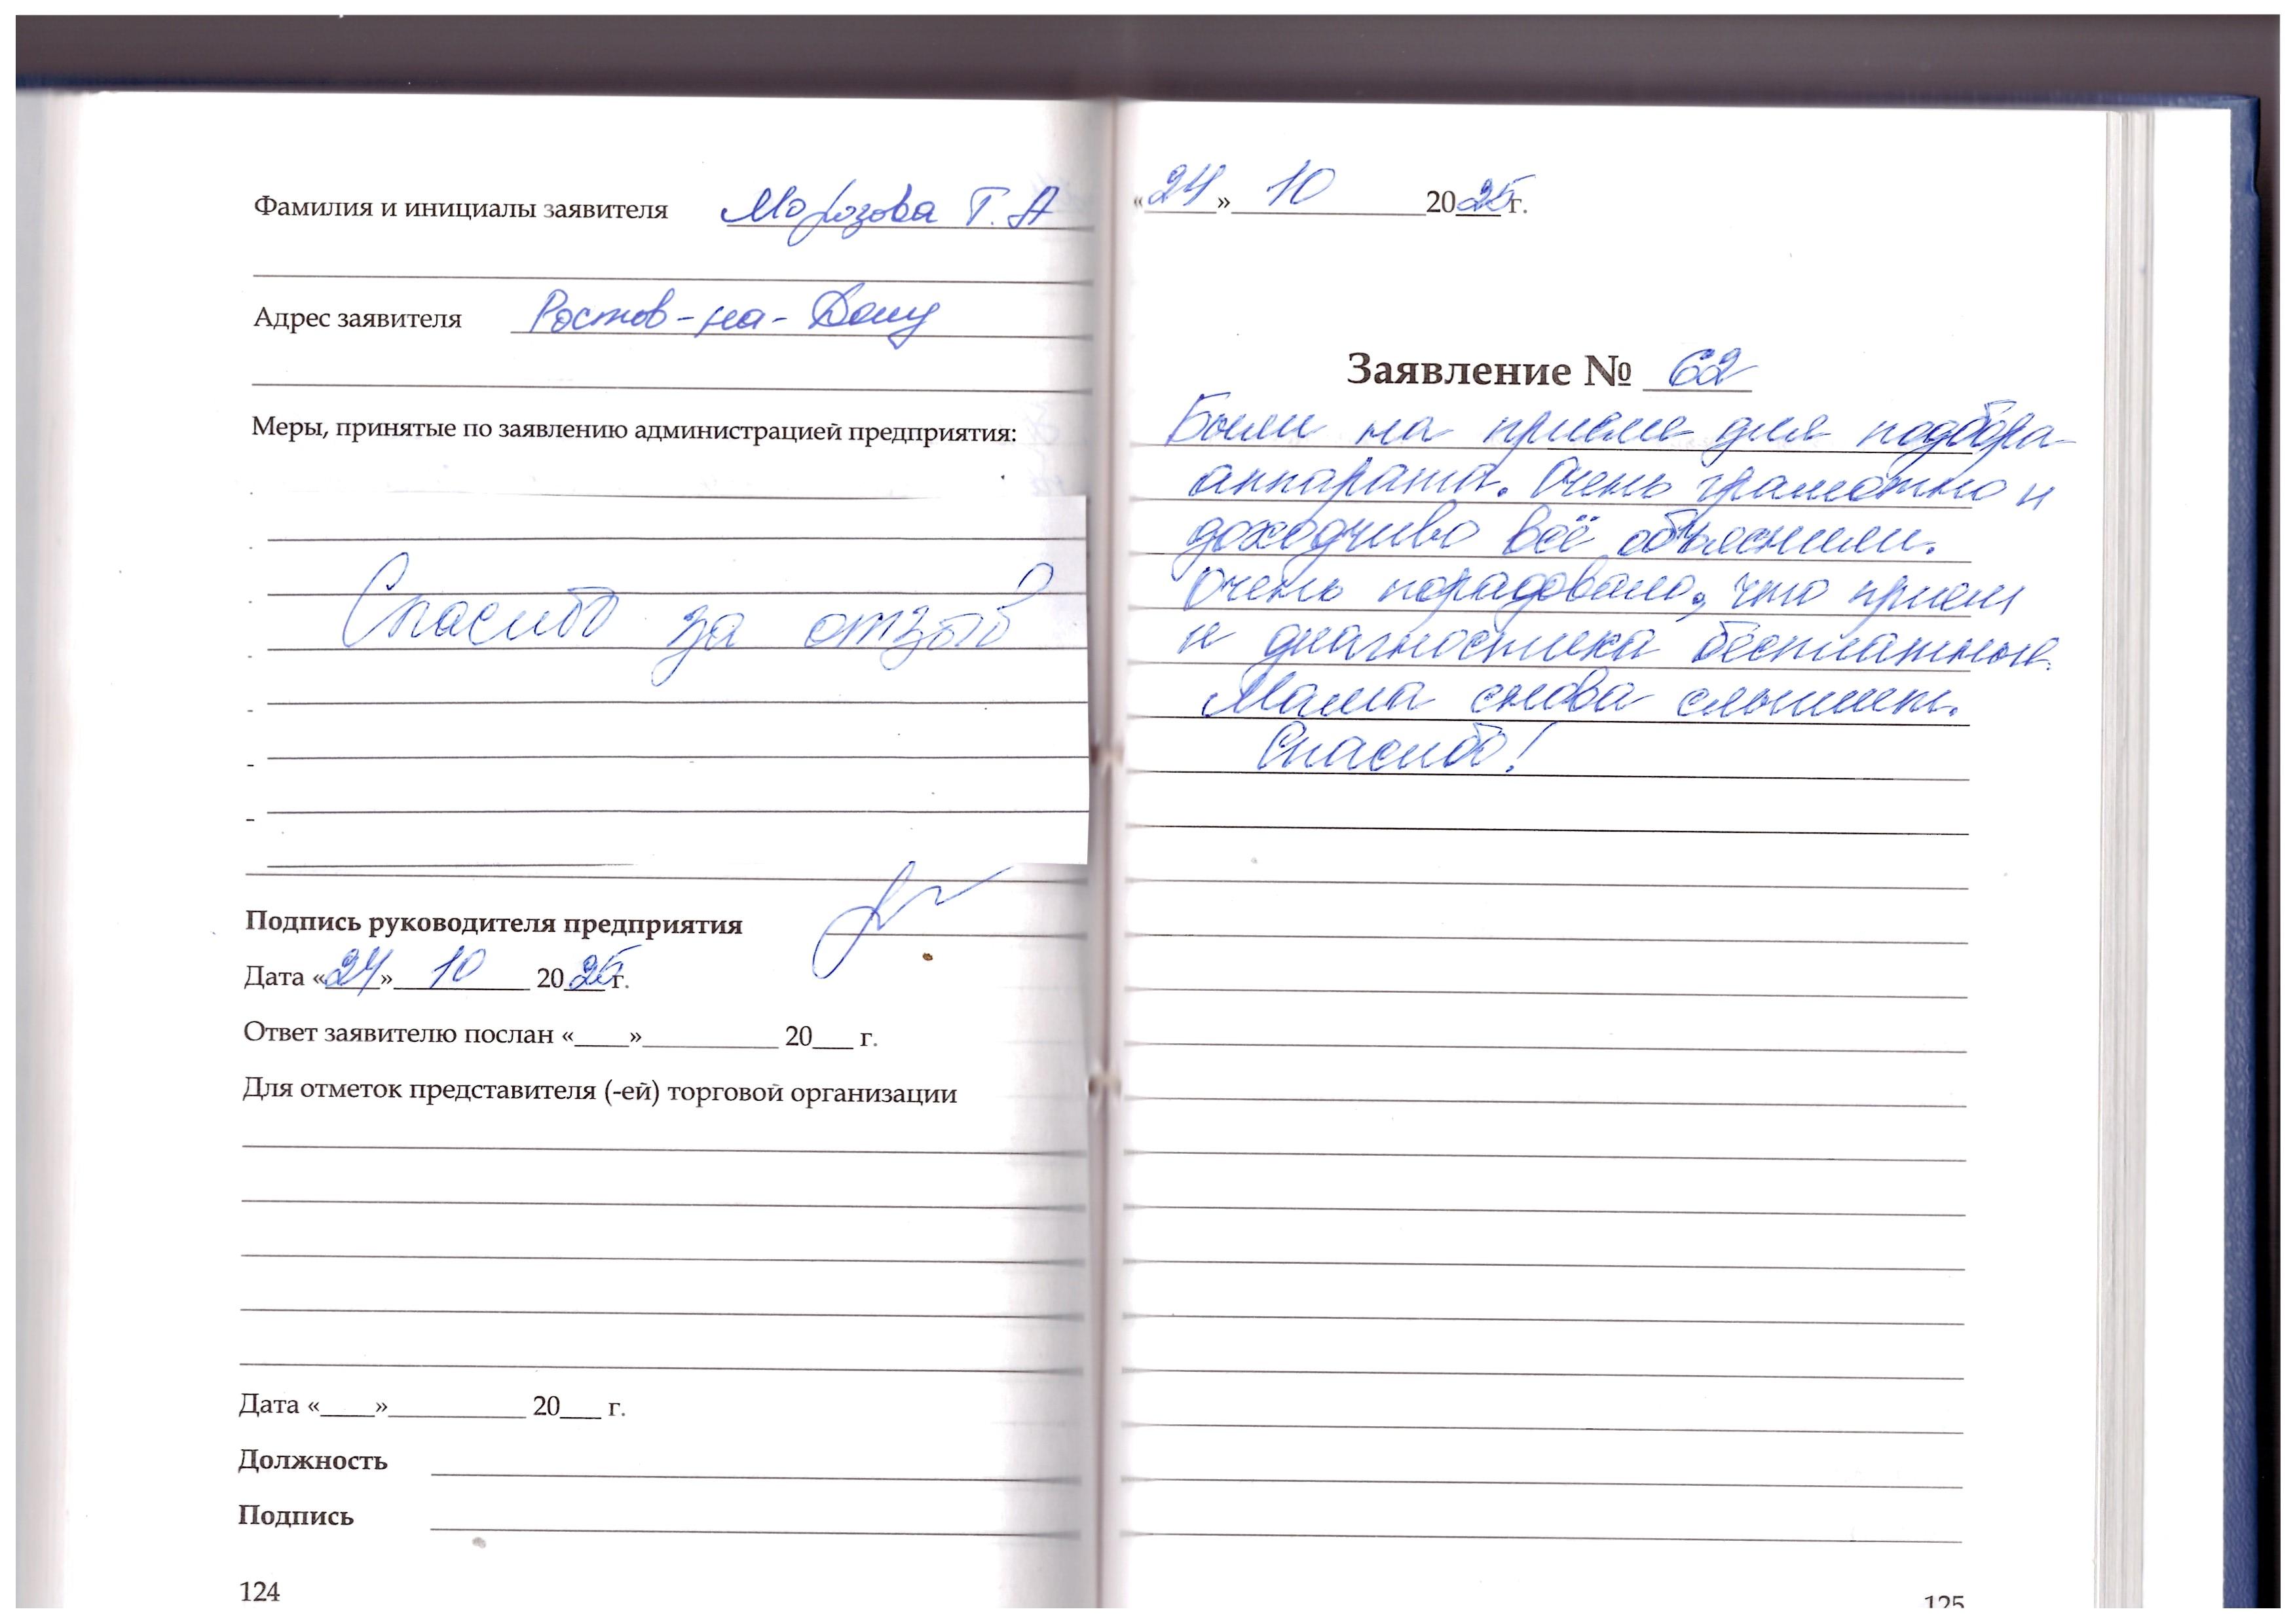 Фамилия и инициалы заявителя Морозова Т. А
Адрес заявителя Ростов-на-Дону
Меры, принятые по заявлению администрацией предприятия:
Спасибо за отзыв
Подпись руководителя предприятия
Дата «24» 10 2025 г.
Ответ заявителю послан «____»__________ 20___ г.
Для отметок представителя (-ей) торговой организации
Дата «____»__________ 20___ г.
Должность
Подпись
124
«24» 10 2025 г.
Заявление № 62
Были на приеме для подбора
аппарата. Очень грамотно и
доходчиво всё объяснили.
Очень порадовало, что прием
и диагностика бесплатные.
Мама снова слышит.
Спасибо!
125